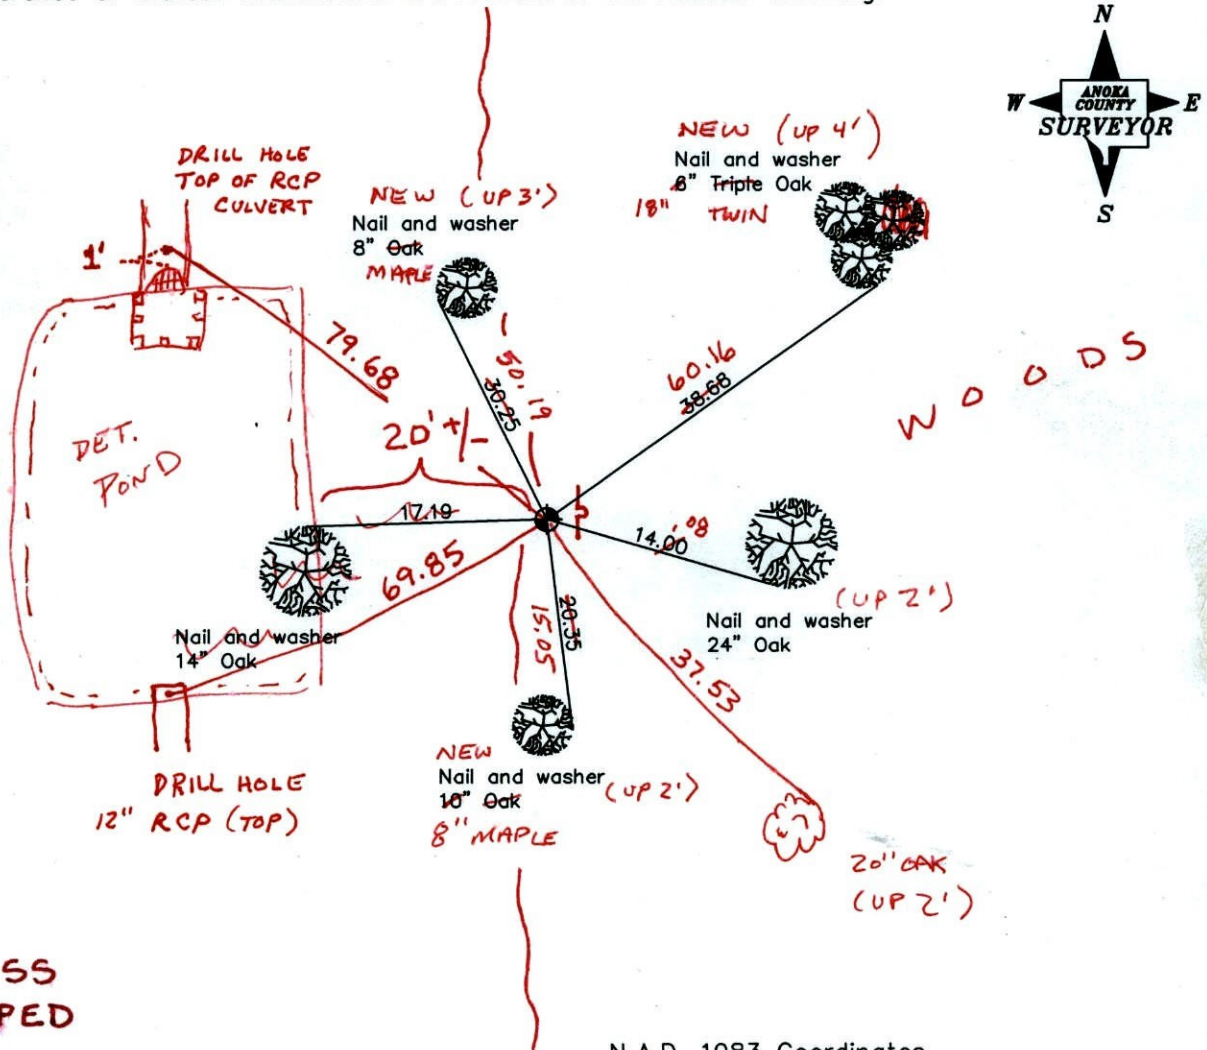 N
W ANOKA COUNTY E
SURVEYOR
S
DRILL HOLE
TOP OF RCP
CULVERT
1'
NEW (UP 3')
Nail and washer
8" Oak
MAPLE
NEW (UP 4')
Nail and washer
6" Triple Oak
18" TWIN
79.68
50.19
30.25
60.16
38.68
WOODS
DET.
POND
20' +/-
17.19
14.00
.08
69.85
(UP 2')
Nail and washer
24" Oak
Nail and washer
14" Oak
15.05
20.35
37.53
NEW
Nail and washer (UP 2')
10" Oak
8" MAPLE
DRILL HOLE
12" RCP (TOP)
20" OAK
(UP 2')
SS
PED
N.A.D. 1983 Coordinates